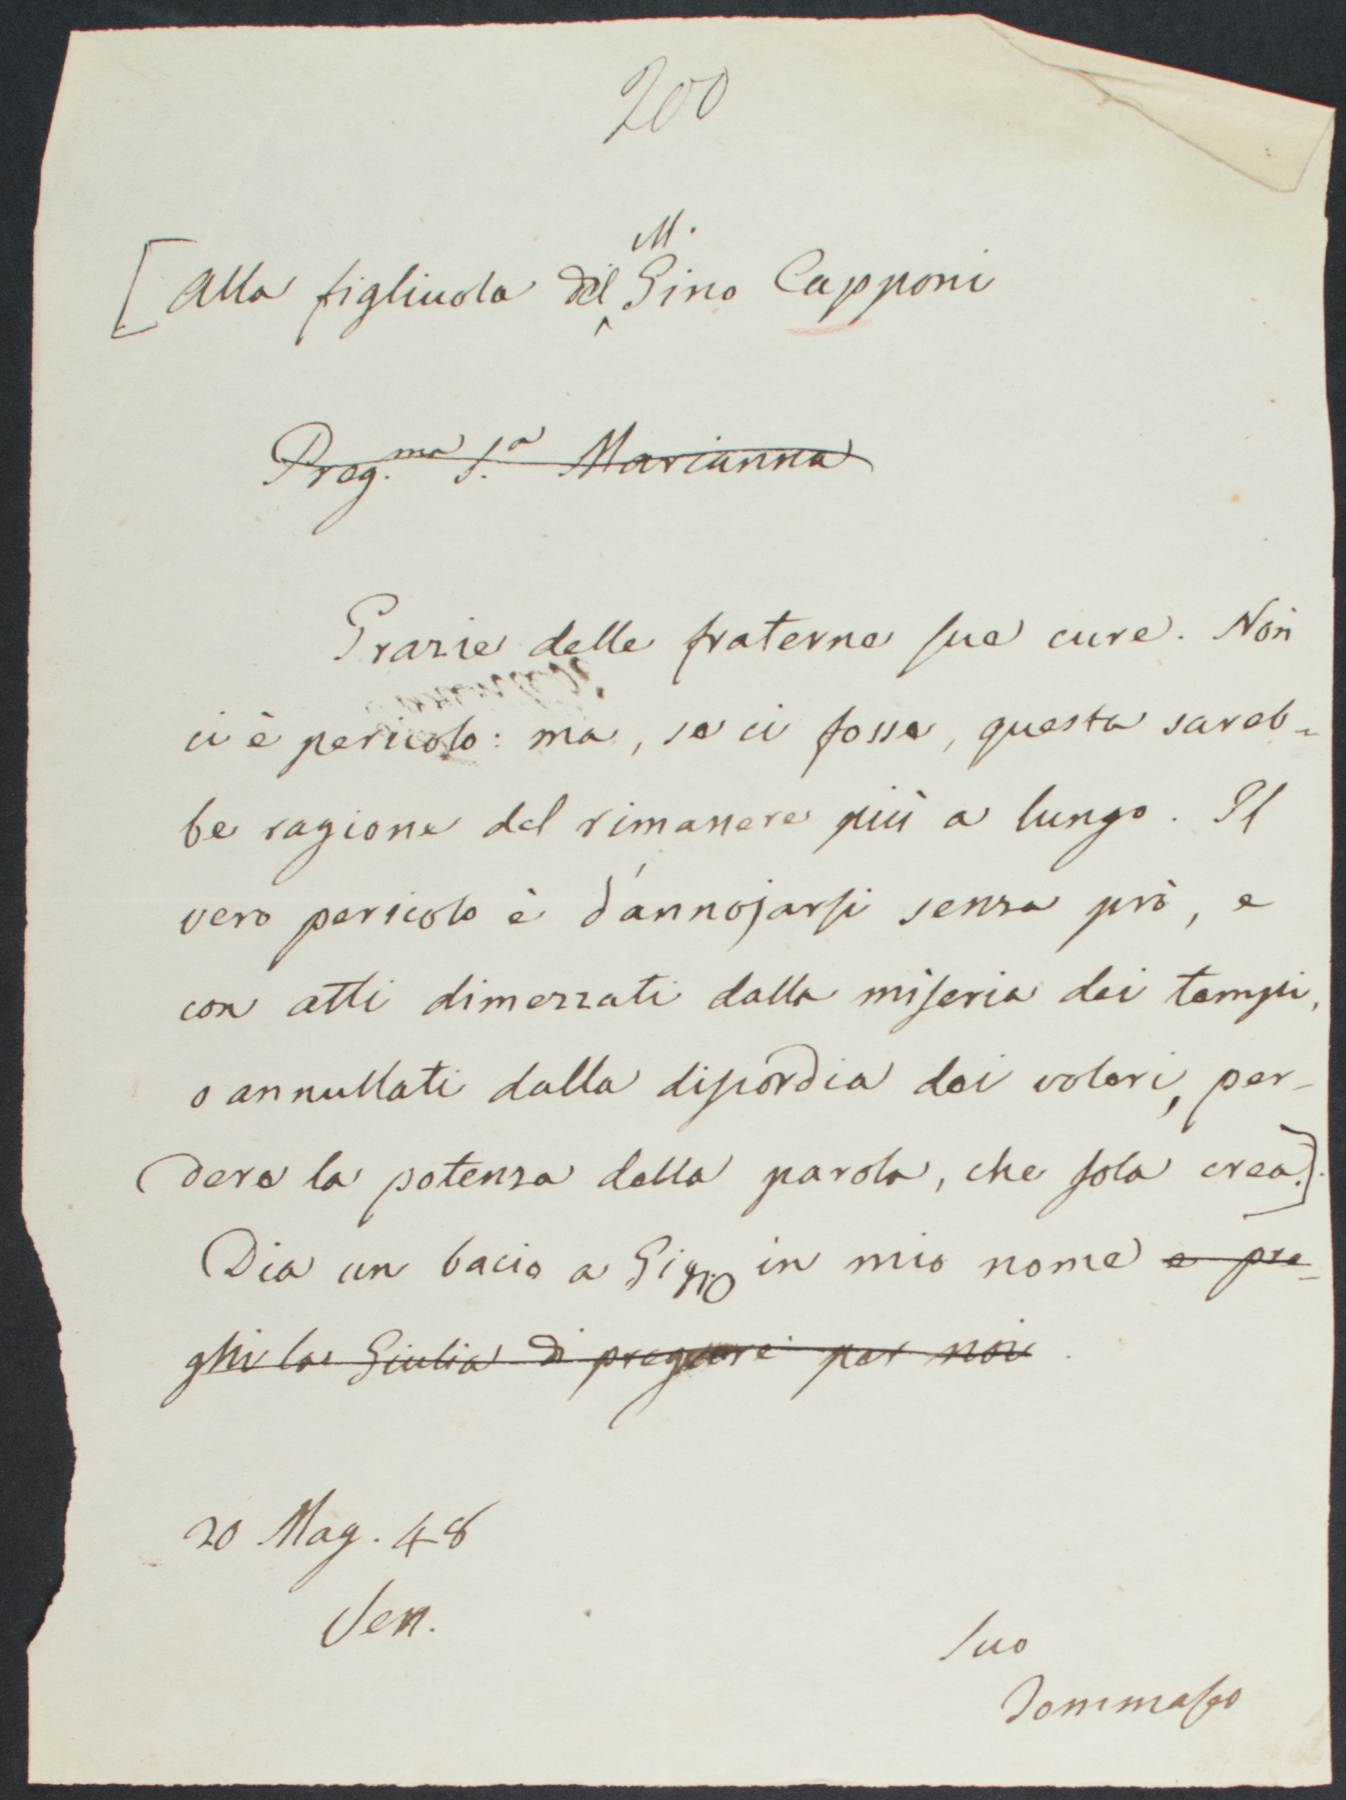 200
[Alla figliuola del M. Gino Capponi
Preg.ma S.a Marianna
Grazie delle fraterne sue cure. Non
ci è pericolo: ma, se ci fosse, questa sareb-
be ragione del rimanere più a lungo. Il
vero pericolo è d'annojarsi senza prò, e
con atti dimezzati dalla miseria dei tempi,
o annullati dalla discordia dei voleri, per-
dere la potenza della parola, che sola crea.].
Dia un bacio a Gigio in mio nome e pre-
ghi la Giulia di pregare per noi.
20 Mag. 48
Ven.
Suo
Tommaseo